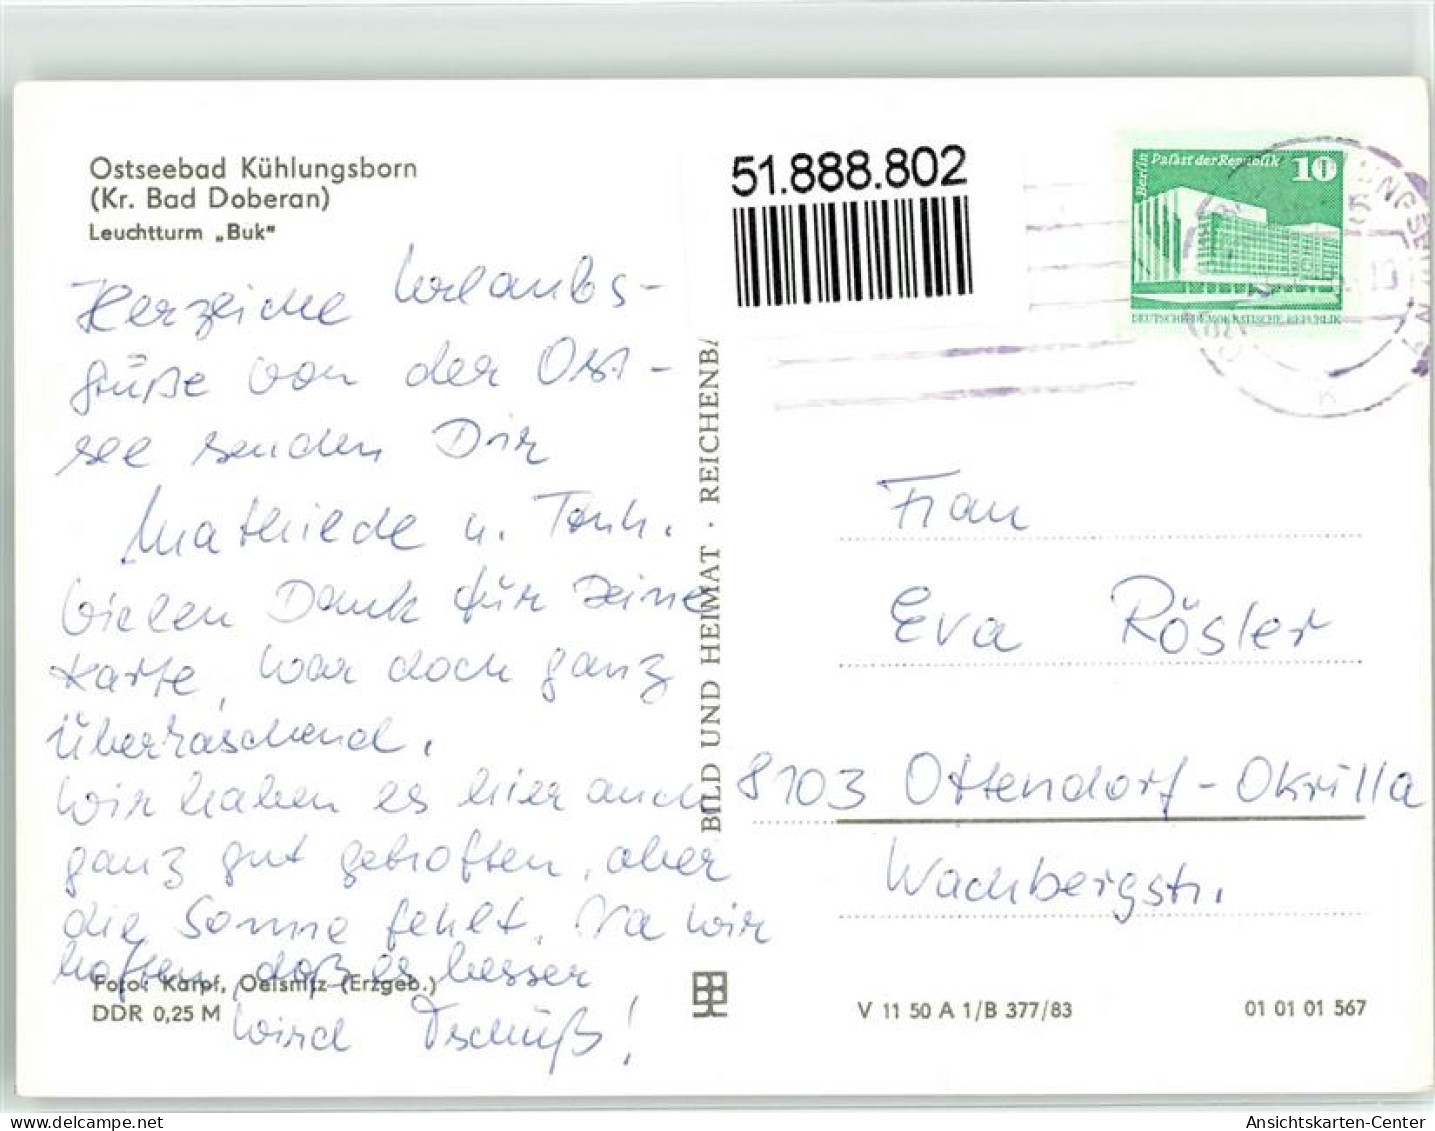 Ostseebad Kühlungsborn
(Kr. Bad Doberan)
Leuchtturm „Buk"
51.888.802
Berlin Palast der Republik 10
DEUTSCHE DEMOKRATISCHE REPUBLIK
Herzliche Urlaubs-
grüße von der Ost-
see senden Dir
Mathilde u.
Vielen Dank für Deine
Karte, war doch ganz
überraschend.
Wir haben es hier auch
ganz gut getroffen, aber
die Sonne fehlt. Na wir
hoffen, daß es besser
wird Tschüß!
Foto: Karpf, Oelsnitz (Erzgeb.)
DDR 0,25 M
BILD UND HEIMAT · REICHENBA
Frau
Eva Rösler
8103 Ottendorf-Okrilla
Wachbergstr.
V 11 50 A 1/B 377/83
01 01 01 567
Ansichtskarten-Center